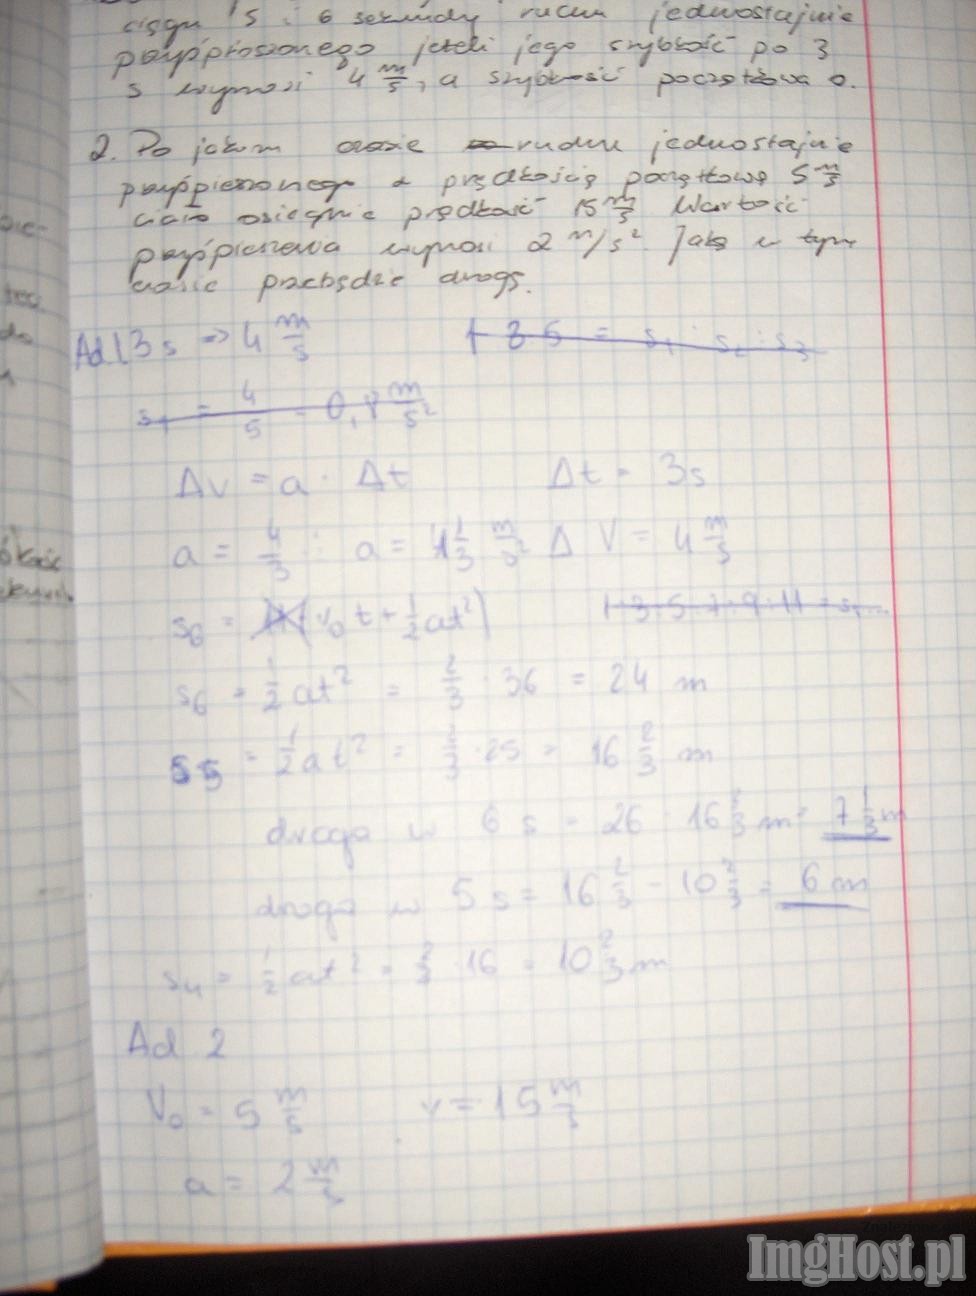 ciągu 5 i 6 sekundy ruchu jednostajnie
przyśpieszonego jeżeli jego szybkość po 3
s wynosi 4 m/s, a szybkość początkowa 0.
2. Po jakim czasie ruchu jednostajnie
przyśpieszonego z prędkością początkową 5 m/s
ciało osiągnie prędkość 15 m/s. Wartość
przyśpieszenia wynosi 2 m/s². Jaką w tym
czasie przebędzie drogę.
Ad 1 3 s => 4 m/s
1 3 5 = s₁ : s₂ : s₃
s₁ = 4/5 = 0,8 m/s²
Δv = a · Δt Δt = 3s
a = 4/3 a = 1 1/3 m/s² ΔV = 4 m/s
s₆ = v₀t + 1/2at² 1:3:5:7:9:11 = s₁...
s₆ = 1/2at² = 2/3 · 36 = 24 m
s5 = 1/2at² = 2/3 · 25 = 16 2/3 m
droga w 6 s = 26 - 16 2/3 m = 7 1/3 m
droga w 5 s = 16 2/3 - 10 2/3 = 6 m
s₄ = 1/2at² = 2/3 · 16 = 10 2/3 m
Ad 2
V₀ = 5 m/s v = 15 m/s
a = 2 m/s
ImgHost.pl